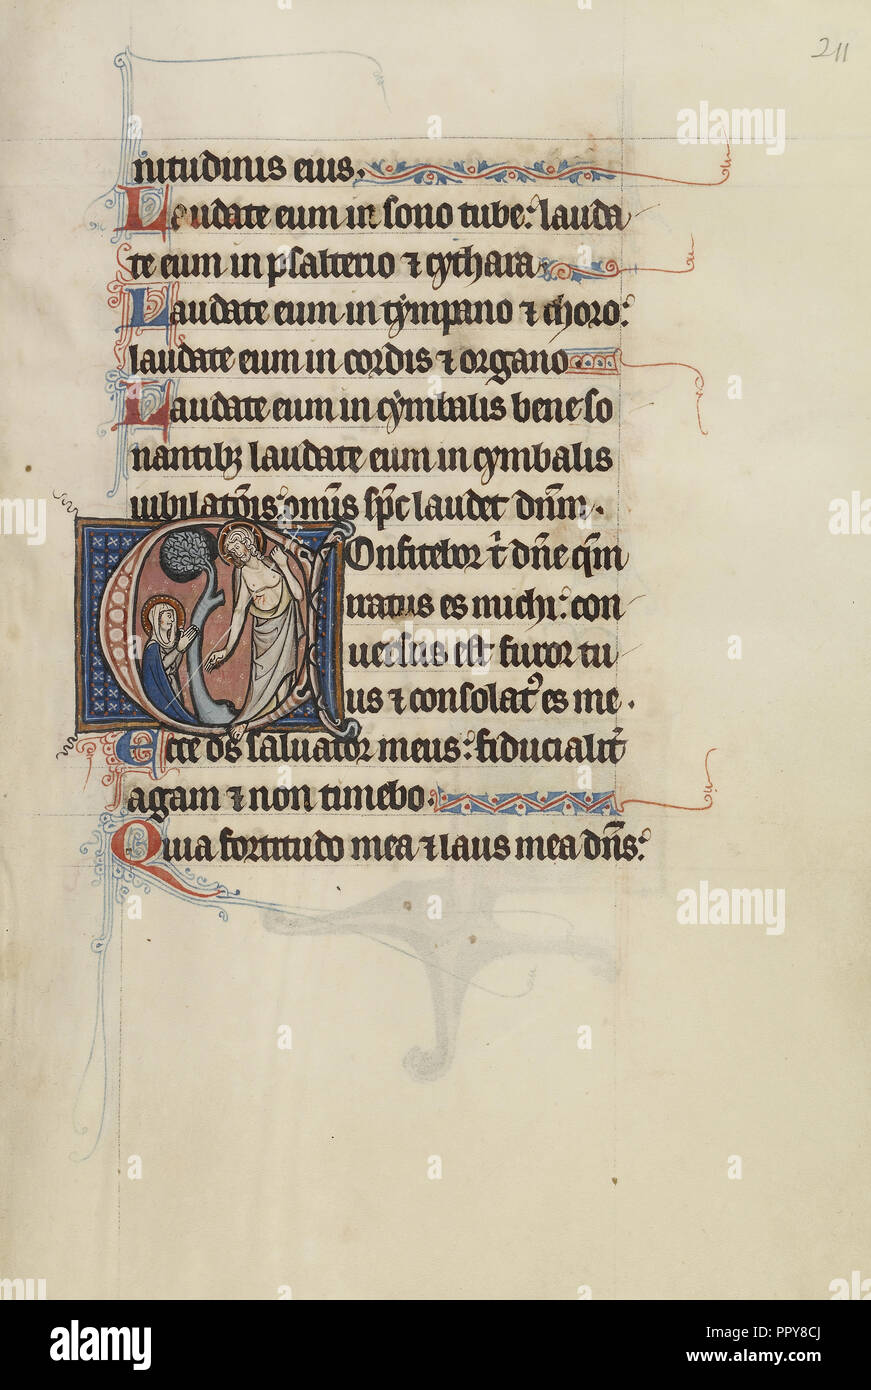 211
nitudinis eius.
Laudate eum in sono tube: lauda
te eum in psalterio ⁊ cythara.
Laudate eum in tympano ⁊ choro:
laudate eum in cordis ⁊ organo.
Laudate eum in cymbalis bene so
nantibꝫ laudate eum in cymbalis
iubilatõnis: omnis sp̃c laudet dñm.
Confitebor t̃ dñe qm̃
iratus es michi: con
uersus est furor tu
us ⁊ consolat᷒ es me.
Ecce ds̃ saluator meus: fiducialit̃
agam ⁊ non timebo.
Quia fortitudo mea ⁊ laus mea dñs:
alamy
alamy
Image ID: PPY8CJ
www.alamy.com